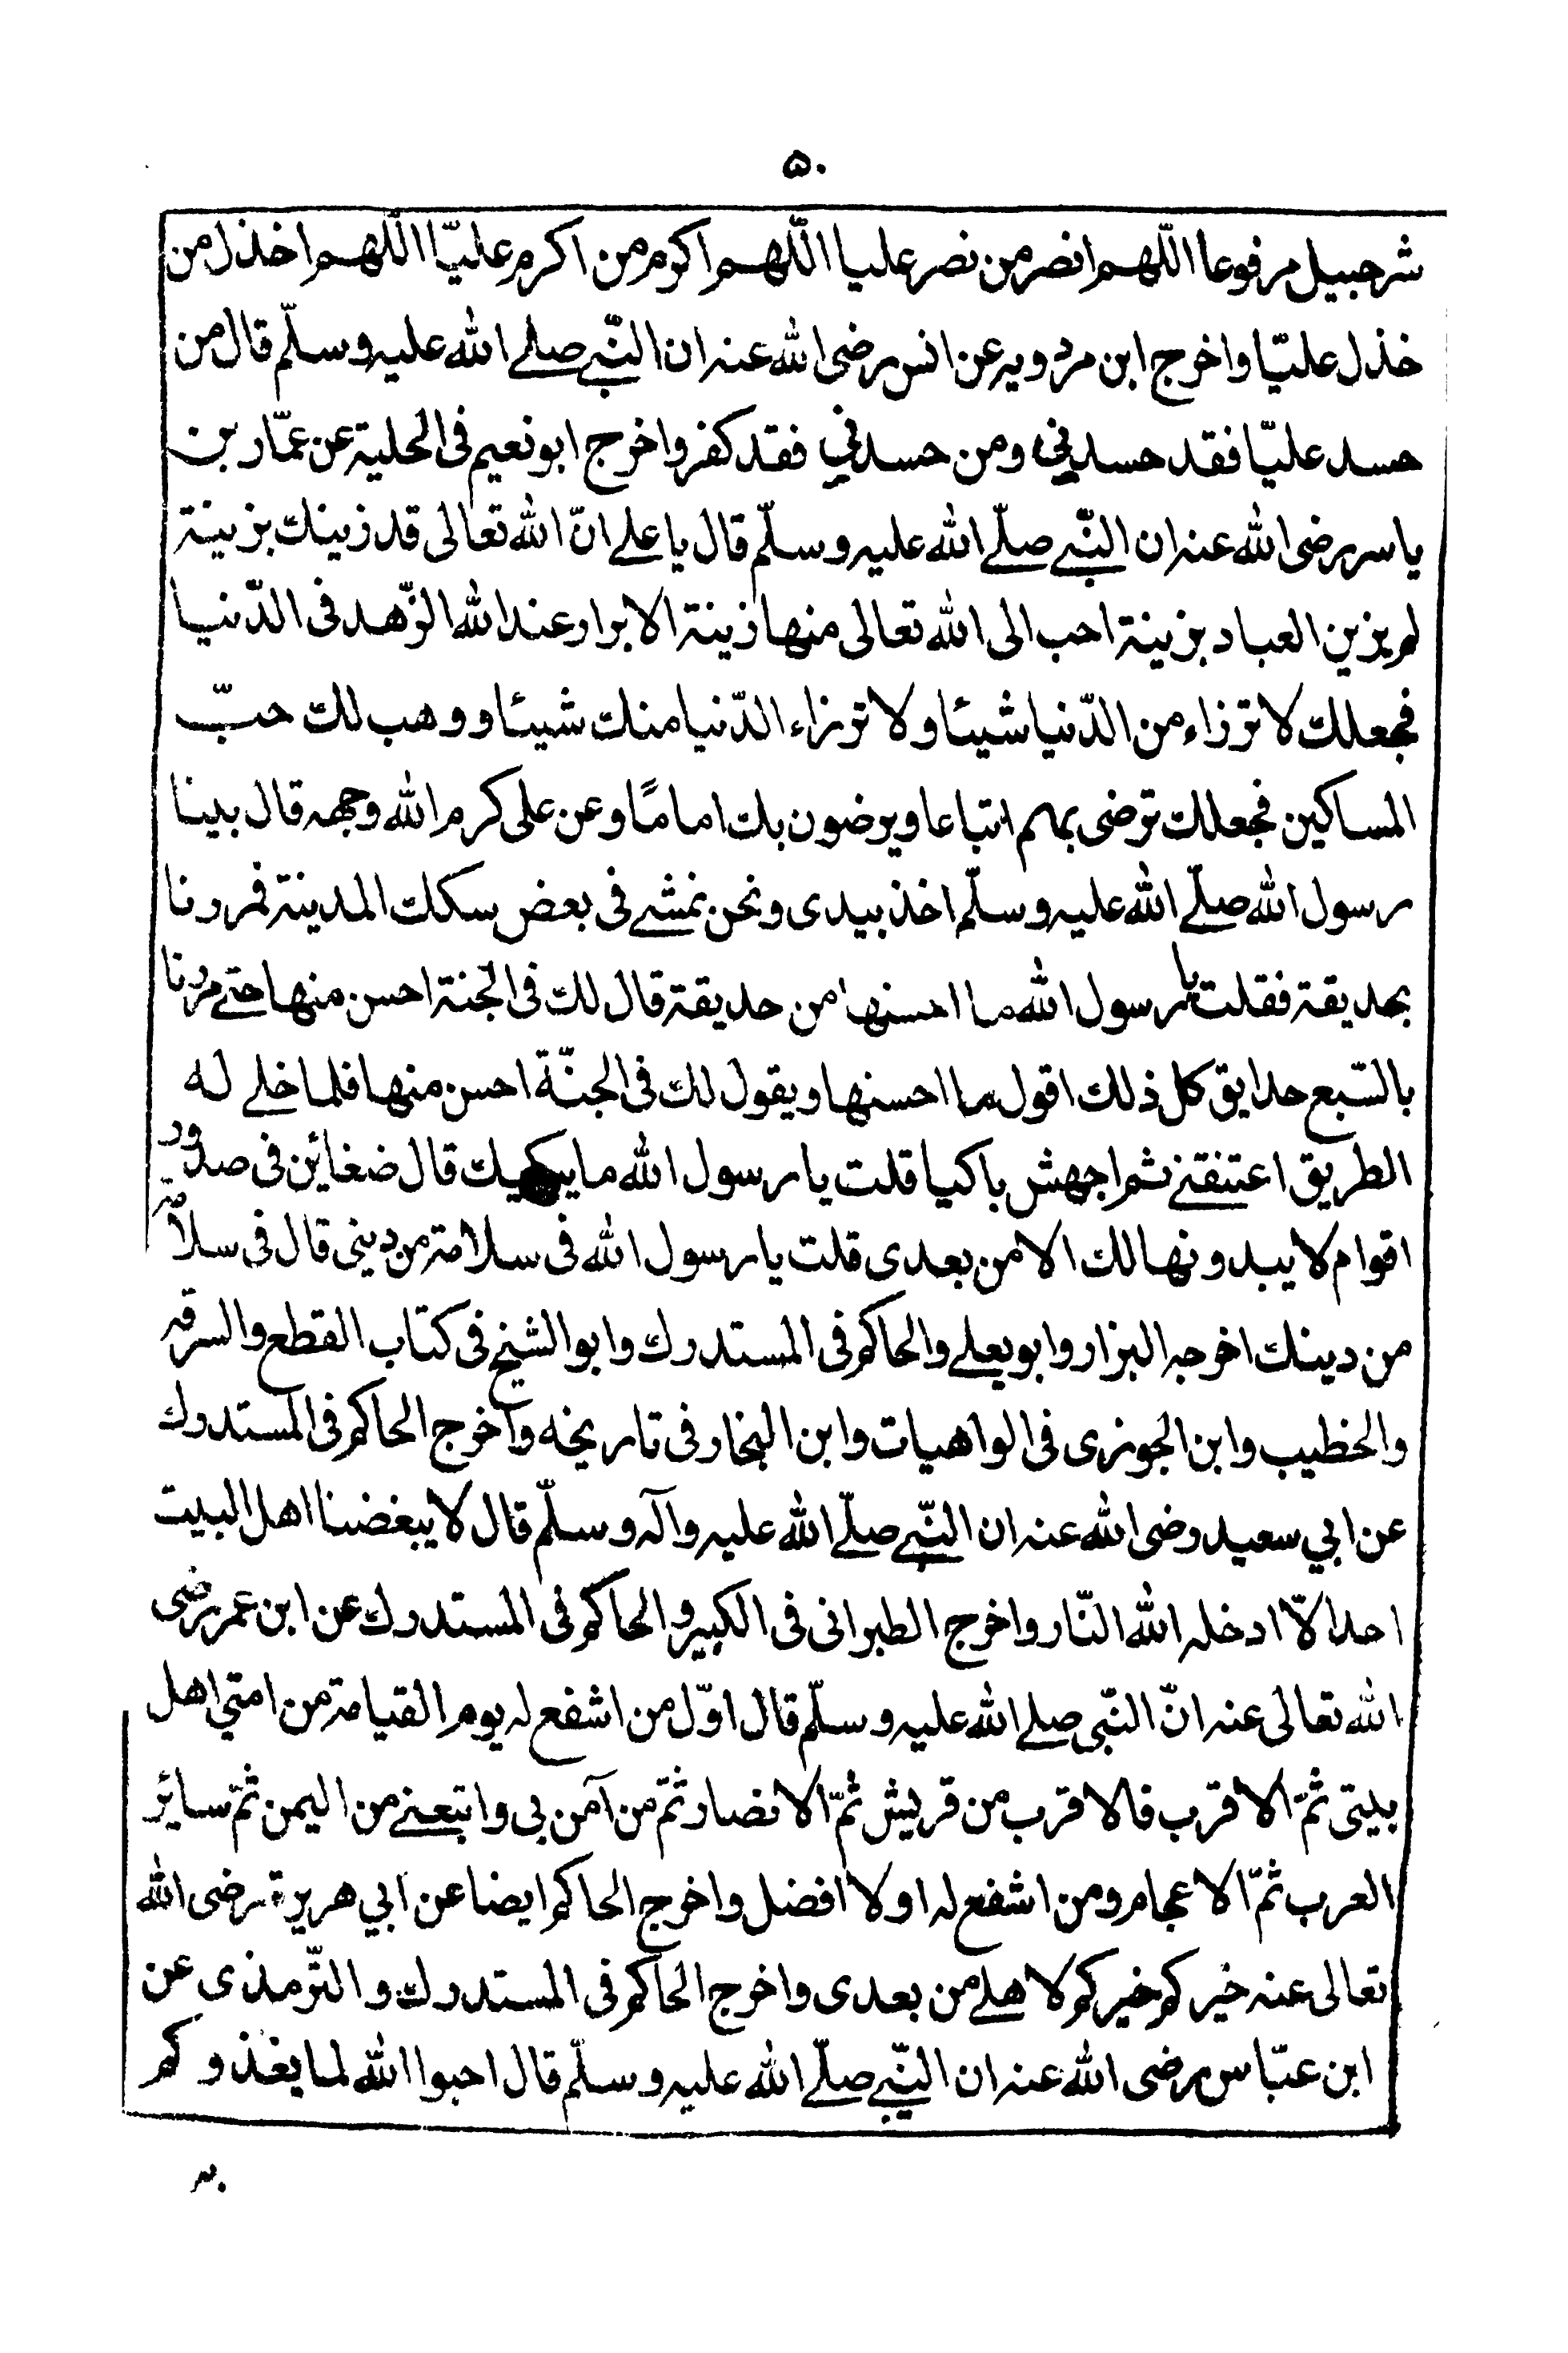 ۵۰
شرحبيل مرفوعا اللّهم انصر من نصر عليا اللّهم اكرم من اكرم عليّا اللّهم اخذل من
خذل عليّا واخرج ابن مردويه عن انس رضى الله عنه ان النّبي صلے الله عليه وسلّم قال من
حسد عليّا فقد حسدني ومن حسدني فقد كفر واخرج ابو نعيم فى الحلية عن عمّار بن
ياسر رضى الله عنه ان النّبي صلّے الله عليه وسلّم قال يا علے انّ الله تعالى قد زينك بزينة
لم يزين العباد بزينة احب الى الله تعالى منها زينة الابرار عند الله الزّهد فى الدّنيا
فجعلك لا ترزاء من الدّنيا شيئا ولا ترزاء الدّنيا منك شيئا ووهب لك حبّ
المساكين فجعلك ترضى بهم اتباعا ويرضون بك امامًا وعن على كرم الله وجهه قال بينا
رسول الله صلّے الله عليه وسلّم اخذ بيدى ونحن نمشے فى بعض سكك المدينة فمررنا
بحديقة فقلت يا رسول الله ما احسنها من حديقة قال لك فى الجنة احسن منها حتے مررنا
بالسّبع حدايق كل ذلك اقول ما احسنها ويقول لك فى الجنّة احسن منها فلما خلے له
الطريق اعتنقنے ثم اجهش باكيا قلت يا رسول الله ما يبكيك قال ضغائن فى صدور
اقوام لا يبدونها لك الا من بعدى قلت يا رسول الله فى سلامة من دينى قال فى سلامة
من دينك اخرجه البزار وابو يعلے والحاكم فى المستدرك وابو الشيخ فى كتاب القطع والسرقه
والخطيب وابن الجوزى فى الواهيات وابن النجار فى تاريخه واخرج الحاكم فى المستدرك
عن ابي سعيد رضى الله عنه ان النّبے صلّے الله عليه وآله وسلّم قال لا يبغضنا اهل البيت
احد الّا ادخله الله النّار واخرج الطبرانى فى الكبير والحاكم فى المستدرك عن ابن عمر رضى
الله تعالى عنه انّ النّبى صلے الله عليه وسلّم قال اوّل من اشفع له يوم القيامة من امتي اهل
بيتى ثمّ الاقرب فالاقرب من قريش ثمّ الانصار ثمّ من آمن بى واتبعنے من اليمن ثمّ سائر
العرب ثمّ الاعجام ومن اشفع له اولا افضل واخرج الحاكم ايضا عن ابي هريرة رضى الله
تعالى عنه خيركم خيركم لاهلے من بعدى واخرج الحاكم فى المستدرك والتّرمذى عن
ابن عبّاس رضى الله عنه ان النّبے صلّے الله عليه وسلّم قال احبوا الله لما يغذوكم
به